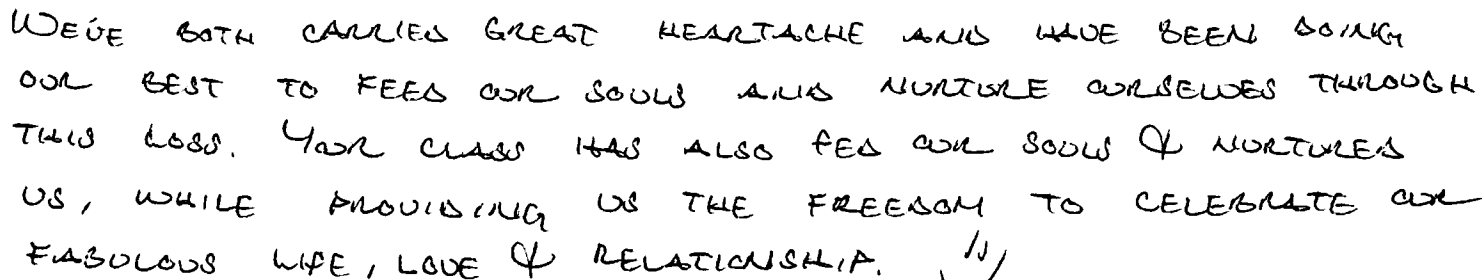 WE'VE BOTH CARRIED GREAT HEARTACHE AND HAVE BEEN DOING
OUR BEST TO FEED OUR SOULS AND NURTURE OURSELVES THROUGH
THIS LOSS. YOUR CLASS HAS ALSO FED OUR SOULS & NURTURED
US, WHILE PROVIDING US THE FREEDOM TO CELEBRATE OUR
FABULOUS LIFE, LOVE & RELATIONSHIP.